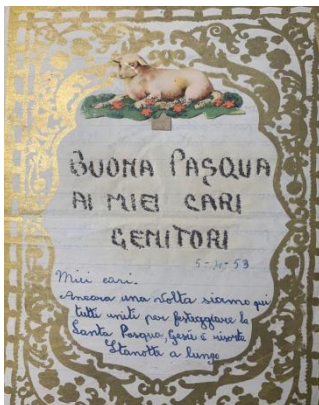 BUONA PASQUA
AI MIEI CARI
GENITORI
5-4-53
Miei cari.
Ancora una volta siamo qui
tutti uniti per festeggiare la
Santa Pasqua, Gesù è risorto
Stanotte a lungo